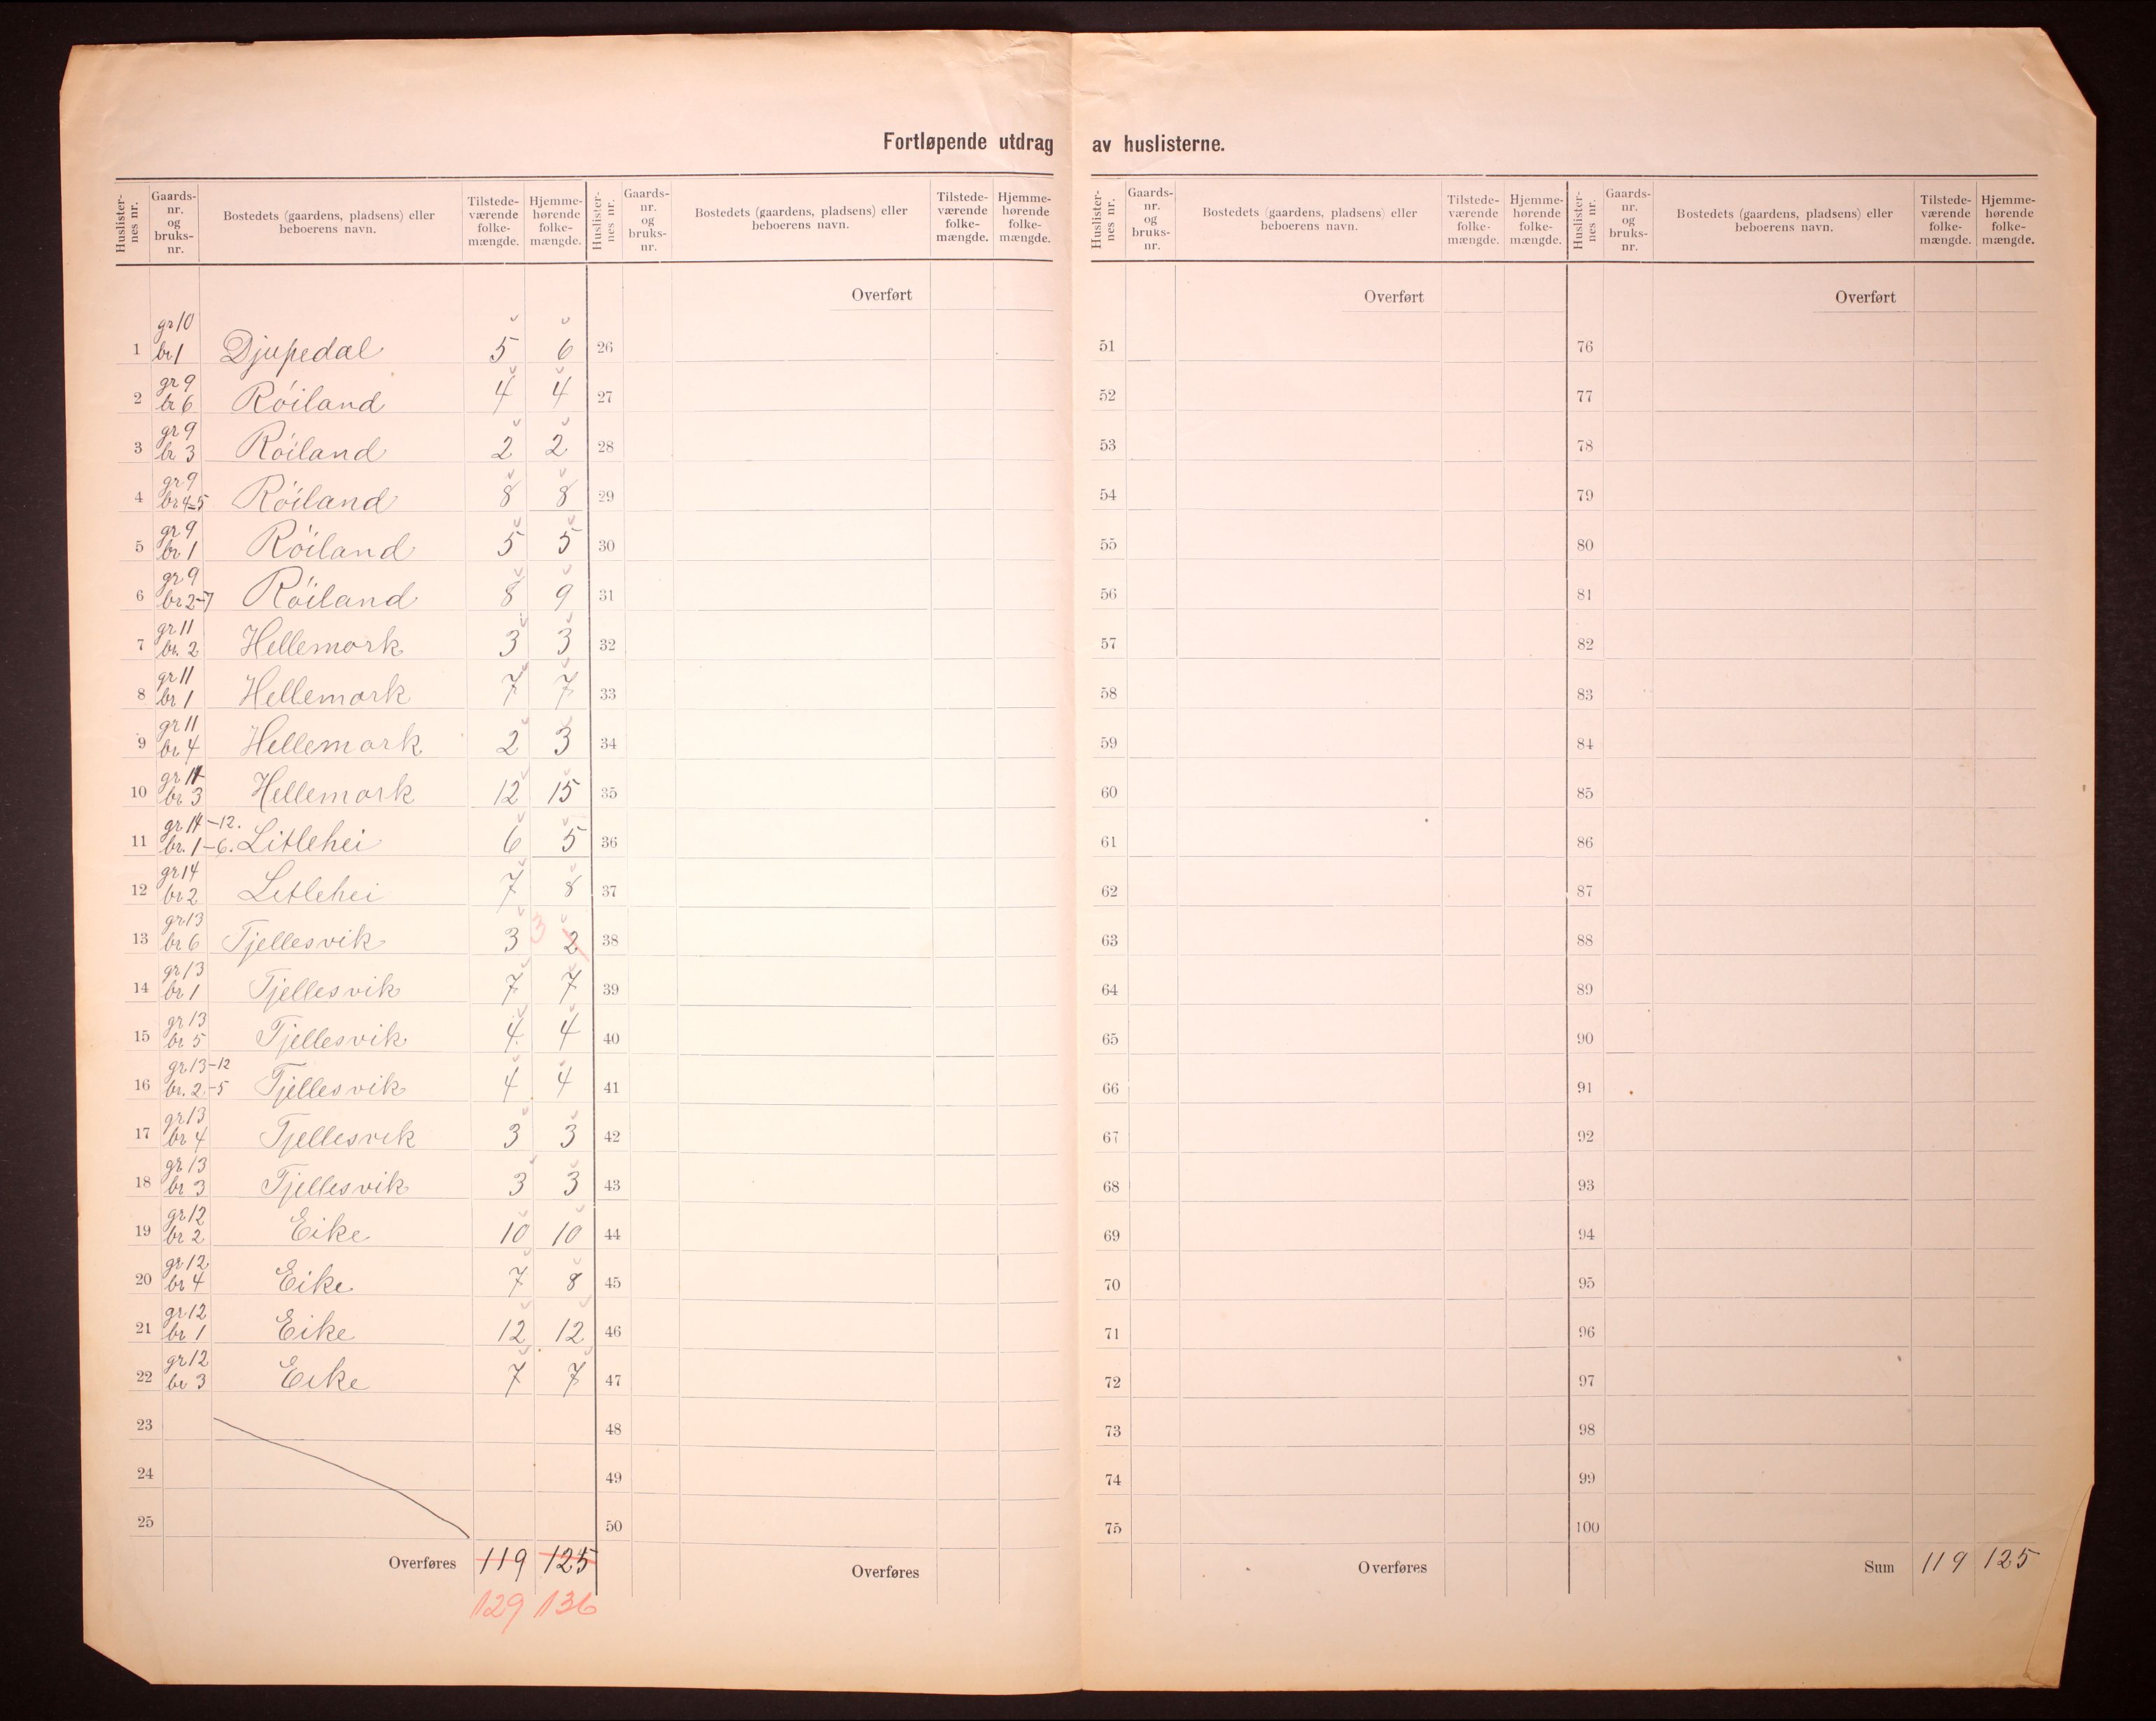 Fortløpende utdrag av huslisterne.
Huslister-nes nr. Gaards-nr. og bruks-nr. Bostedets (gaardens, pladsens) eller beboerens navn. Tilstede-værende folke-mængde. Hjemme-hørende folke-mængde.
Huslister-nes nr. Gaards-nr. og bruks-nr. Bostedets (gaardens, pladsens) eller beboerens navn. Tilstede-værende folke-mængde. Hjemme-hørende folke-mængde.
Huslister-nes nr. Gaards-nr. og bruks-nr. Bostedets (gaardens, pladsens) eller beboerens navn. Tilstede-værende folke-mængde. Hjemme-hørende folke-mængde.
Huslister-nes nr. Gaards-nr. og bruks-nr. Bostedets (gaardens, pladsens) eller beboerens navn. Tilstede-værende folke-mængde. Hjemme-hørende folke-mængde.
Overført Overført Overført
1 gr 10 br 1 Djupedal 5 6 26 51 76
2 gr 9 br 6 Röiland 4 4 27 52 77
3 gr 9 br 3 Röiland 2 2 28 53 78
4 gr 9 br 4-5 Röiland 8 8 29 54 79
5 gr 9 br 1 Röiland 5 5 30 55 80
6 gr 9 br 2-7 Röiland 8 9 31 56 81
7 gr 11 br. 2 Hellemork 3 3 32 57 82
8 gr 11 br 1 Hellemork 7 7 33 58 83
9 gr 11 br 4 Hellemork 2 3 34 59 84
10 gr 11 br 3 Hellemork 12 15 35 60 85
11 gr 14-12. br. 1-6. Litlehei 6 5 36 61 86
12 gr 14 br 2 Litlehei 7 8 37 62 87
13 gr 13 br 6 Tjellesvik 3 3 2 38 63 88
14 gr 13 br 1 Tjellesvik 7 7 39 64 89
15 gr 13 br 5 Tjellesvik 4 4 40 65 90
16 gr 13-12 br. 2-5 Tjellesvik 4 4 41 66 91
17 gr 13 br 4 Tjellesvik 3 3 42 67 92
18 gr 13 br 3 Tjellesvik 3 3 43 68 93
19 gr 12 br 2 Eike 10 10 44 69 94
20 gr 12 br 4 Eike 7 8 45 70 95
21 gr 12 br 1 Eike 12 12 46 71 96
22 gr 12 br 3 Eike 7 7 47 72 97
23 48 73 98
24 49 74 99
25 50 75 100
Overføres 119 125 Overføres Overføres Sum 119 125
129 136